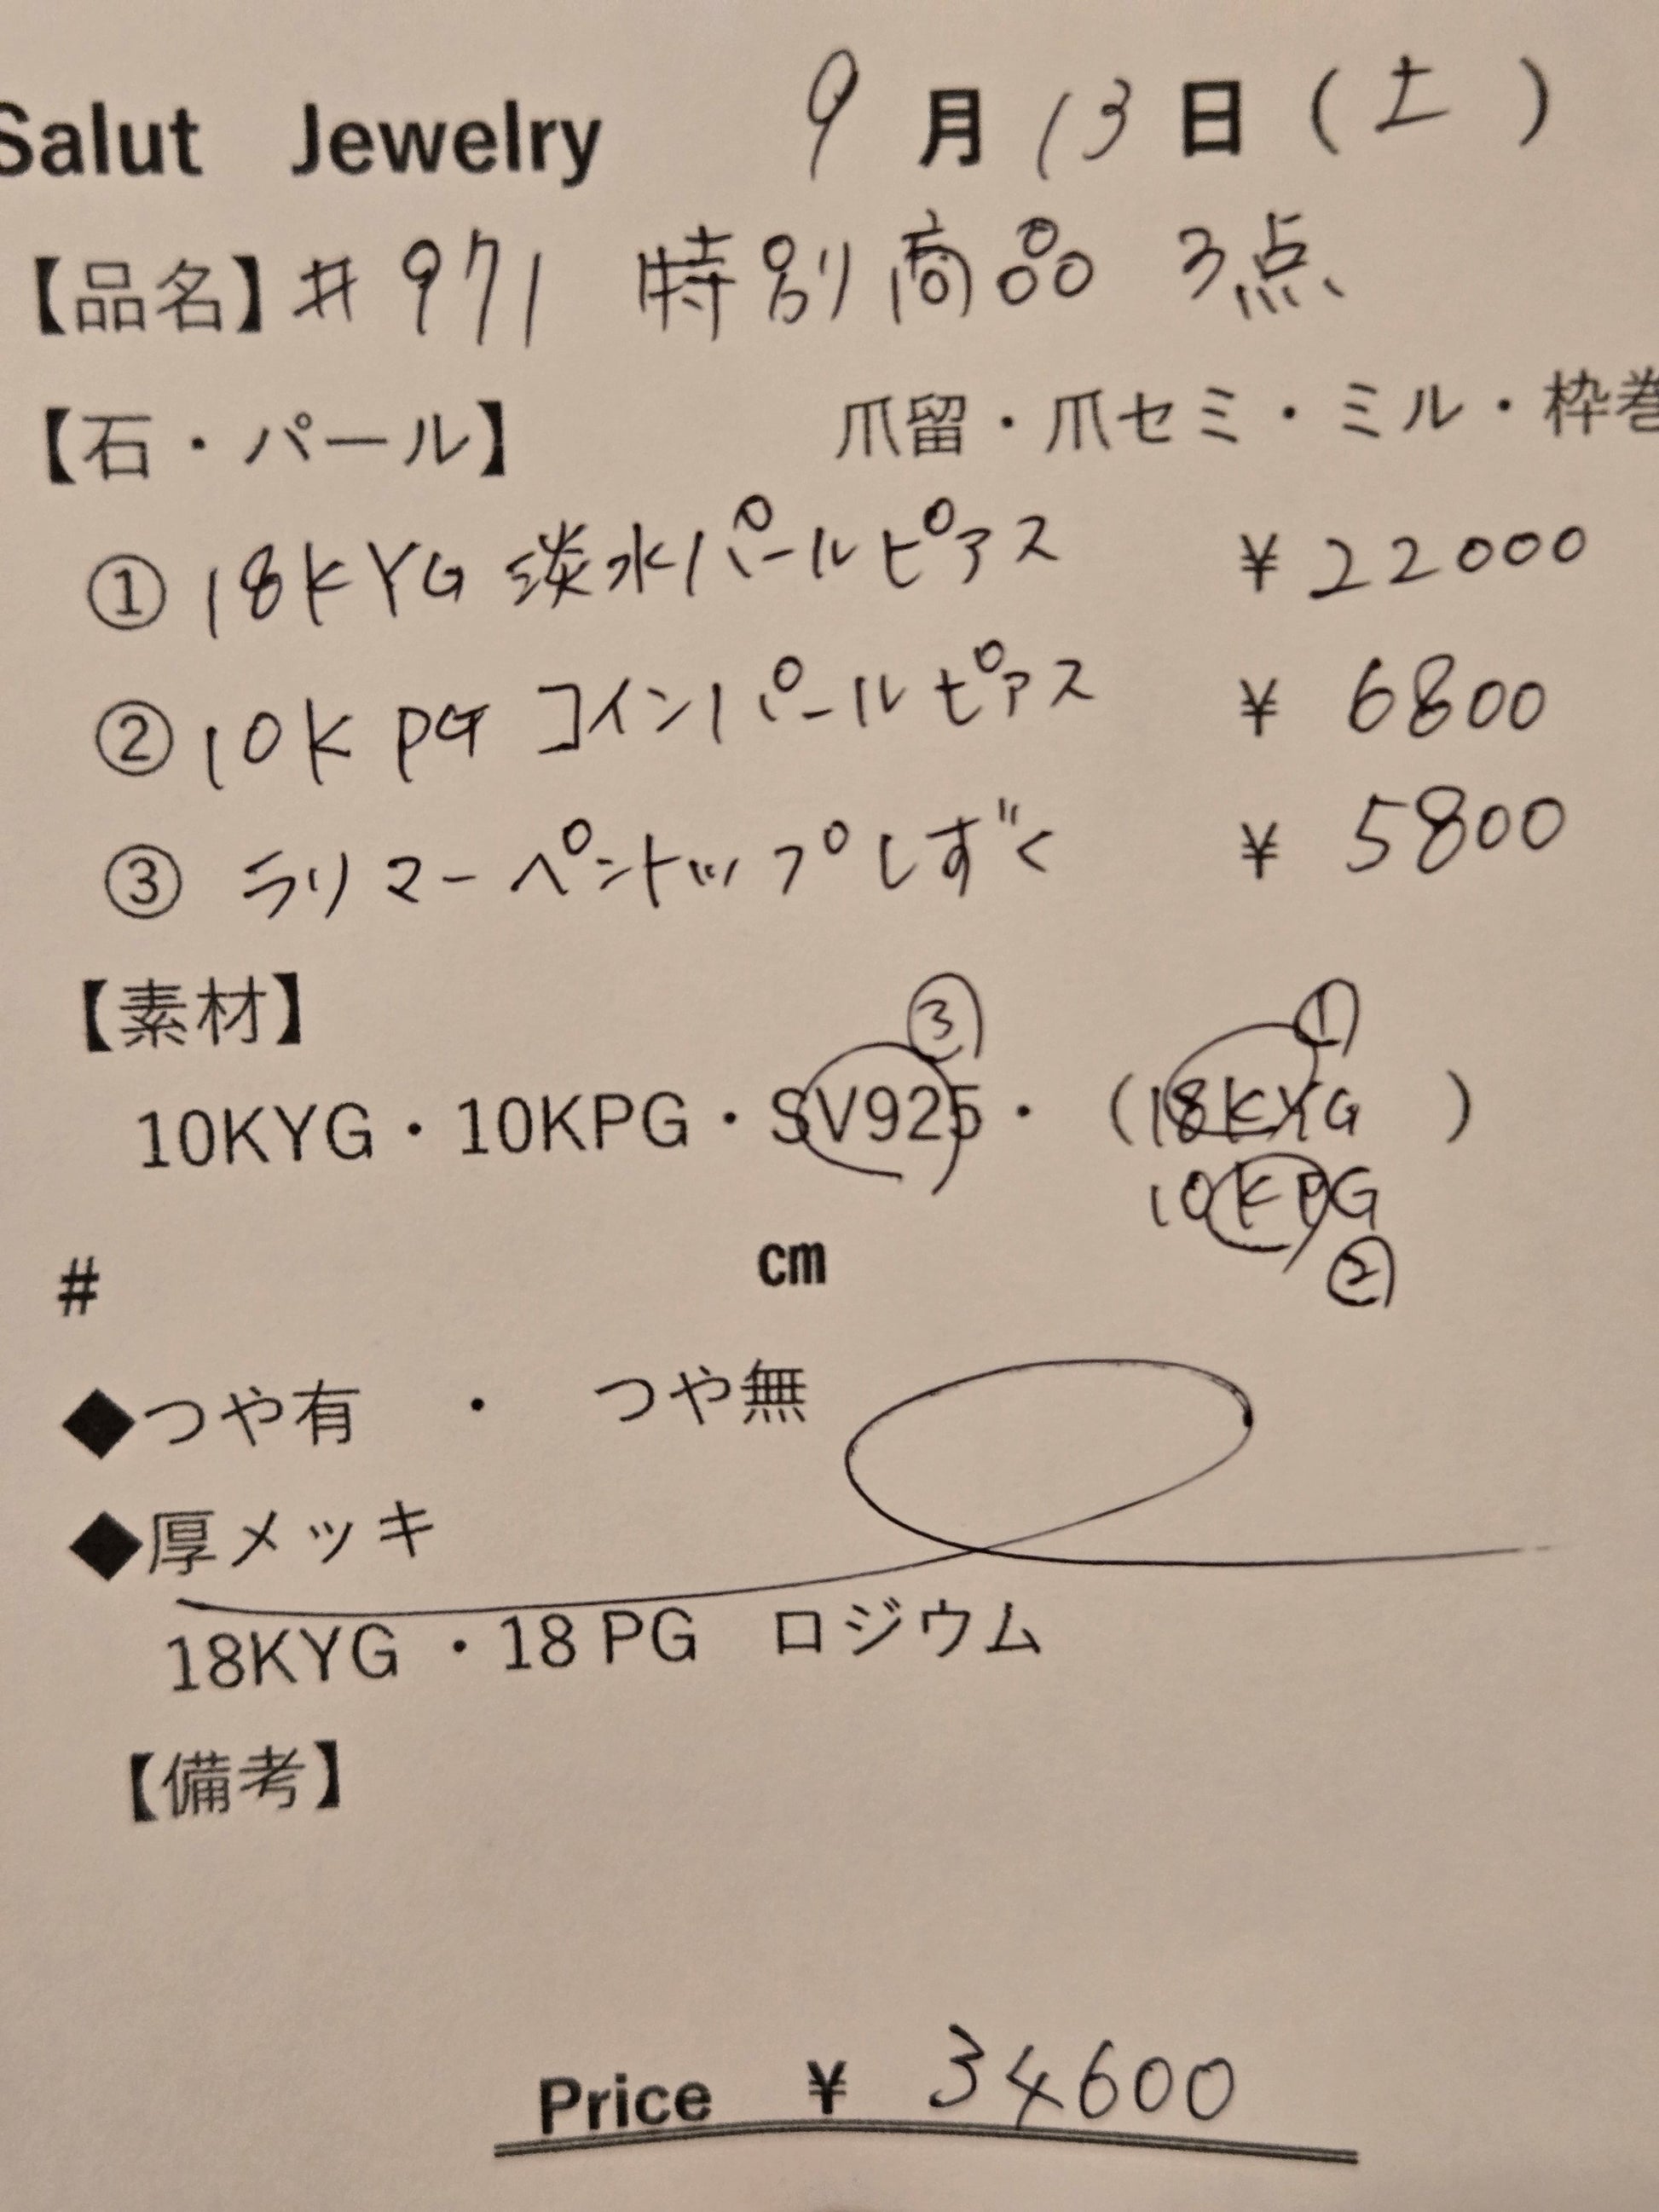 Salut Jewelry 9月13日(土)
【品名】#971 特別商品 3点
【石・パール】 爪留・爪セミ・ミル・枠巻
① 18KYG 淡水パールピアス ¥22000
② 10K PG コインパールピアス ¥6800
③ ラリマーペントップしずく ¥5800
【素材】
③ ①
10KYG・10KPG・SV925・(18KYG)
10KPG
②
# cm
◆つや有 ・ つや無
◆厚メッキ
18KYG ・18 PG ロジウム
【備考】
Price ¥ 34600